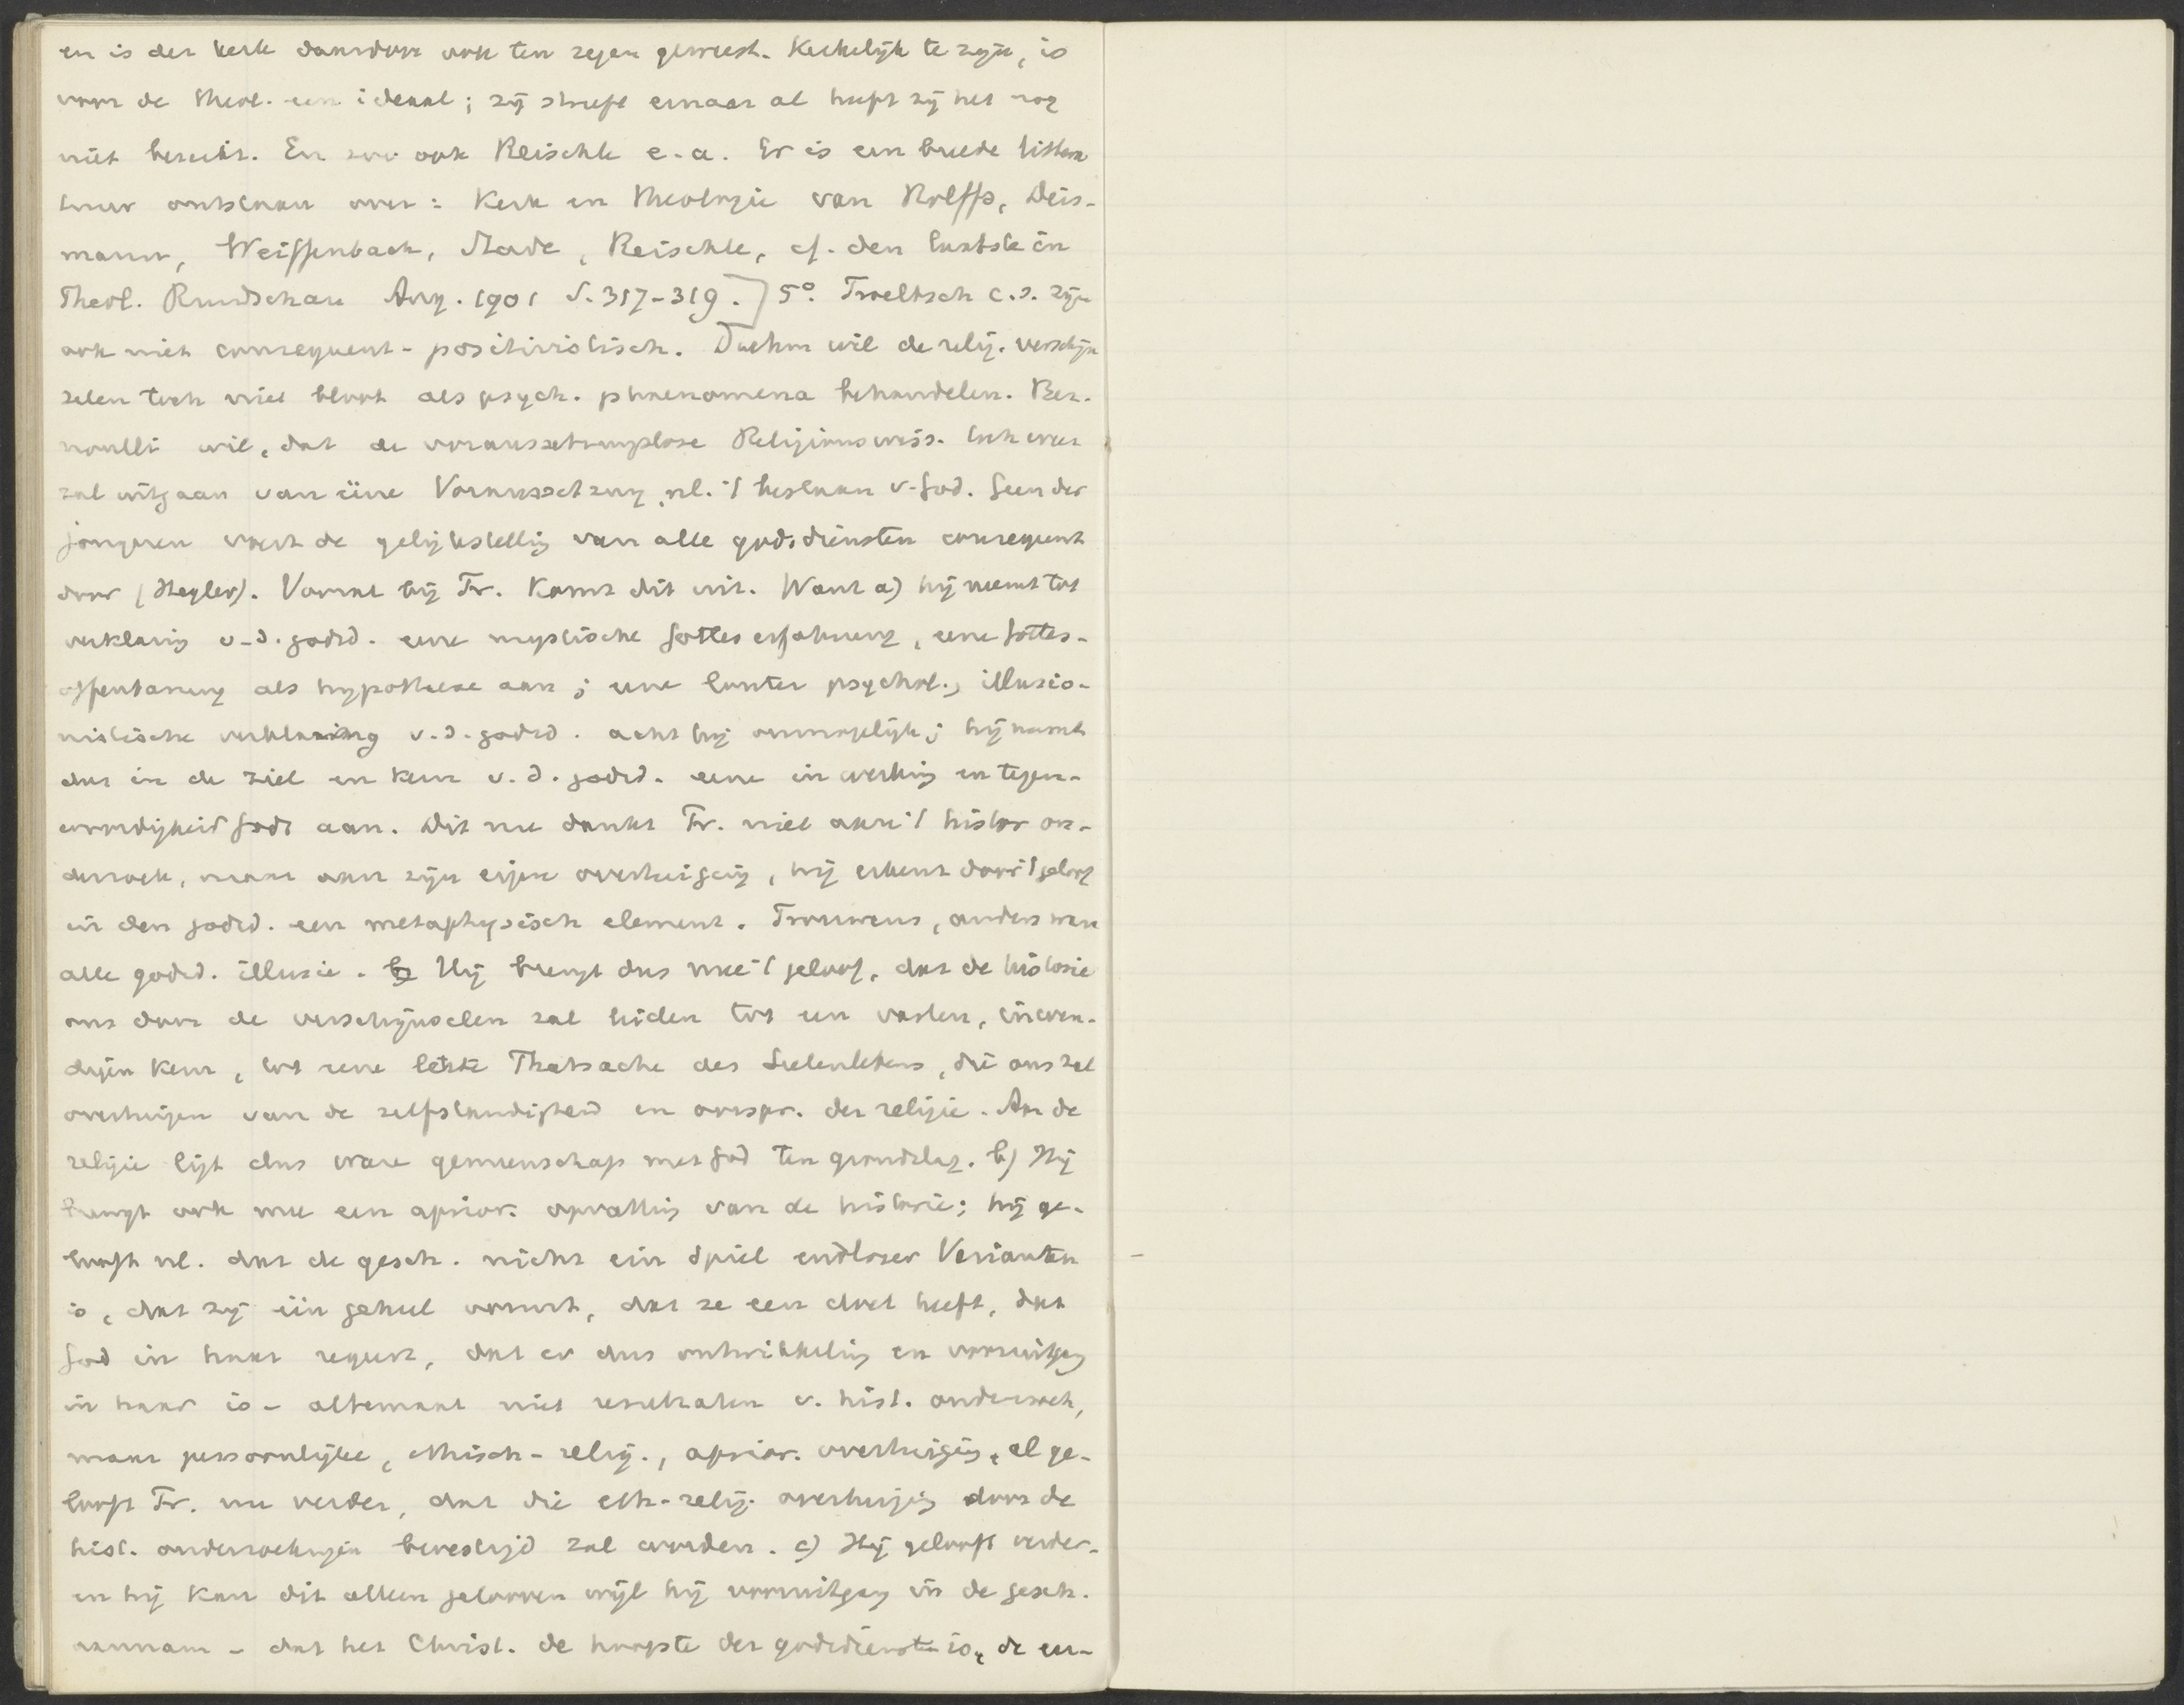 en is der kerk daardoor ook ten zegen geweest. Kerkelijk te zijn, is
voor de theol. een ideaal; zij streeft ernaar al heeft zij het nog
niet bereikt. En zoo ook Reischle e.a. Er is een breede littera
tuur ontstaan over: Kerk en Theologie van Rolffs, Deis-
mann, Weiffenbach, Rade, Reischle, cf. den laatste in
Theol. Rundschau Aug. 1901 S. 317-319.] 5°. Troeltsch c.s. zijn
ook niet consequent-positivistisch. Duhm wil de relig. verschijn
selen toch niet bloot als psych. phaenomena behandelen. Ber-
noulli wil, dat de voraussetzungslose Religionswiss. toch weer
zal uitgaan van ééne Voraussetzung, nl. 't bestaan v. God. Geen der
jongeren voert de gelijkstelling van alle godsdiensten consequent
door (Hegler). Vooral bij Tr. komt dit uit. Want a) hij neemt tot
verklaring v.d. godsd. eene mystische Gotteserfahrung, eene Gottes-
offenbarung als hypothese aan; eene louter psychol., illusio-
nistische verklaring v.d. godsd. acht hij onmogelijk; hij neemt
dus in de ziel en kern v.d. godsd. eene inwerking en tegen-
woordigheid Gods aan. Dit nu dankt Tr. niet aan 't histor on-
derzoek, maar aan zijn eigen overtuiging, hij erkent door 't geloof
in den godsd. een metaphysisch element. Trouwens, anders ware
alle godsd. illusie. Hij brengt dus mee 't geloof, dat de historie
ons door de verschijnselen zal leiden tot een vasten, inwen-
digen kern, tot eene letzte Thatsache des Seelenlebens, die ons zal
overtuigen van de zelfstandigheid en oorspr. der religie. Aan de
religie ligt dus ware gemeenschap met God ten grondslag. b) Hij
brengt ook mee een aprior. opvatting van de historie; hij ge-
looft nl. dat de gesch. nicht ein Spiel endloser Varianten
is, dat zij één geheel vormt, dat ze een doel heeft, dat
God in haar regeert, dat er dus ontwikkeling en vooruitgang
in haar is - altemaal niet resultaten v. hist. onderzoek,
maar persoonlijke, ethisch-relig., aprior. overtuiging, al ge-
looft Tr. nu verder, dat die eth-relig. overtuiging door de
hist. onderzoekingen bevestigd zal worden. c) Hij gelooft verder-
en hij kan dit alleen gelooven wijl hij vooruitgang in de gesch.
aannam - dat het Christ. de hoogste der godsdiensten is, de een-